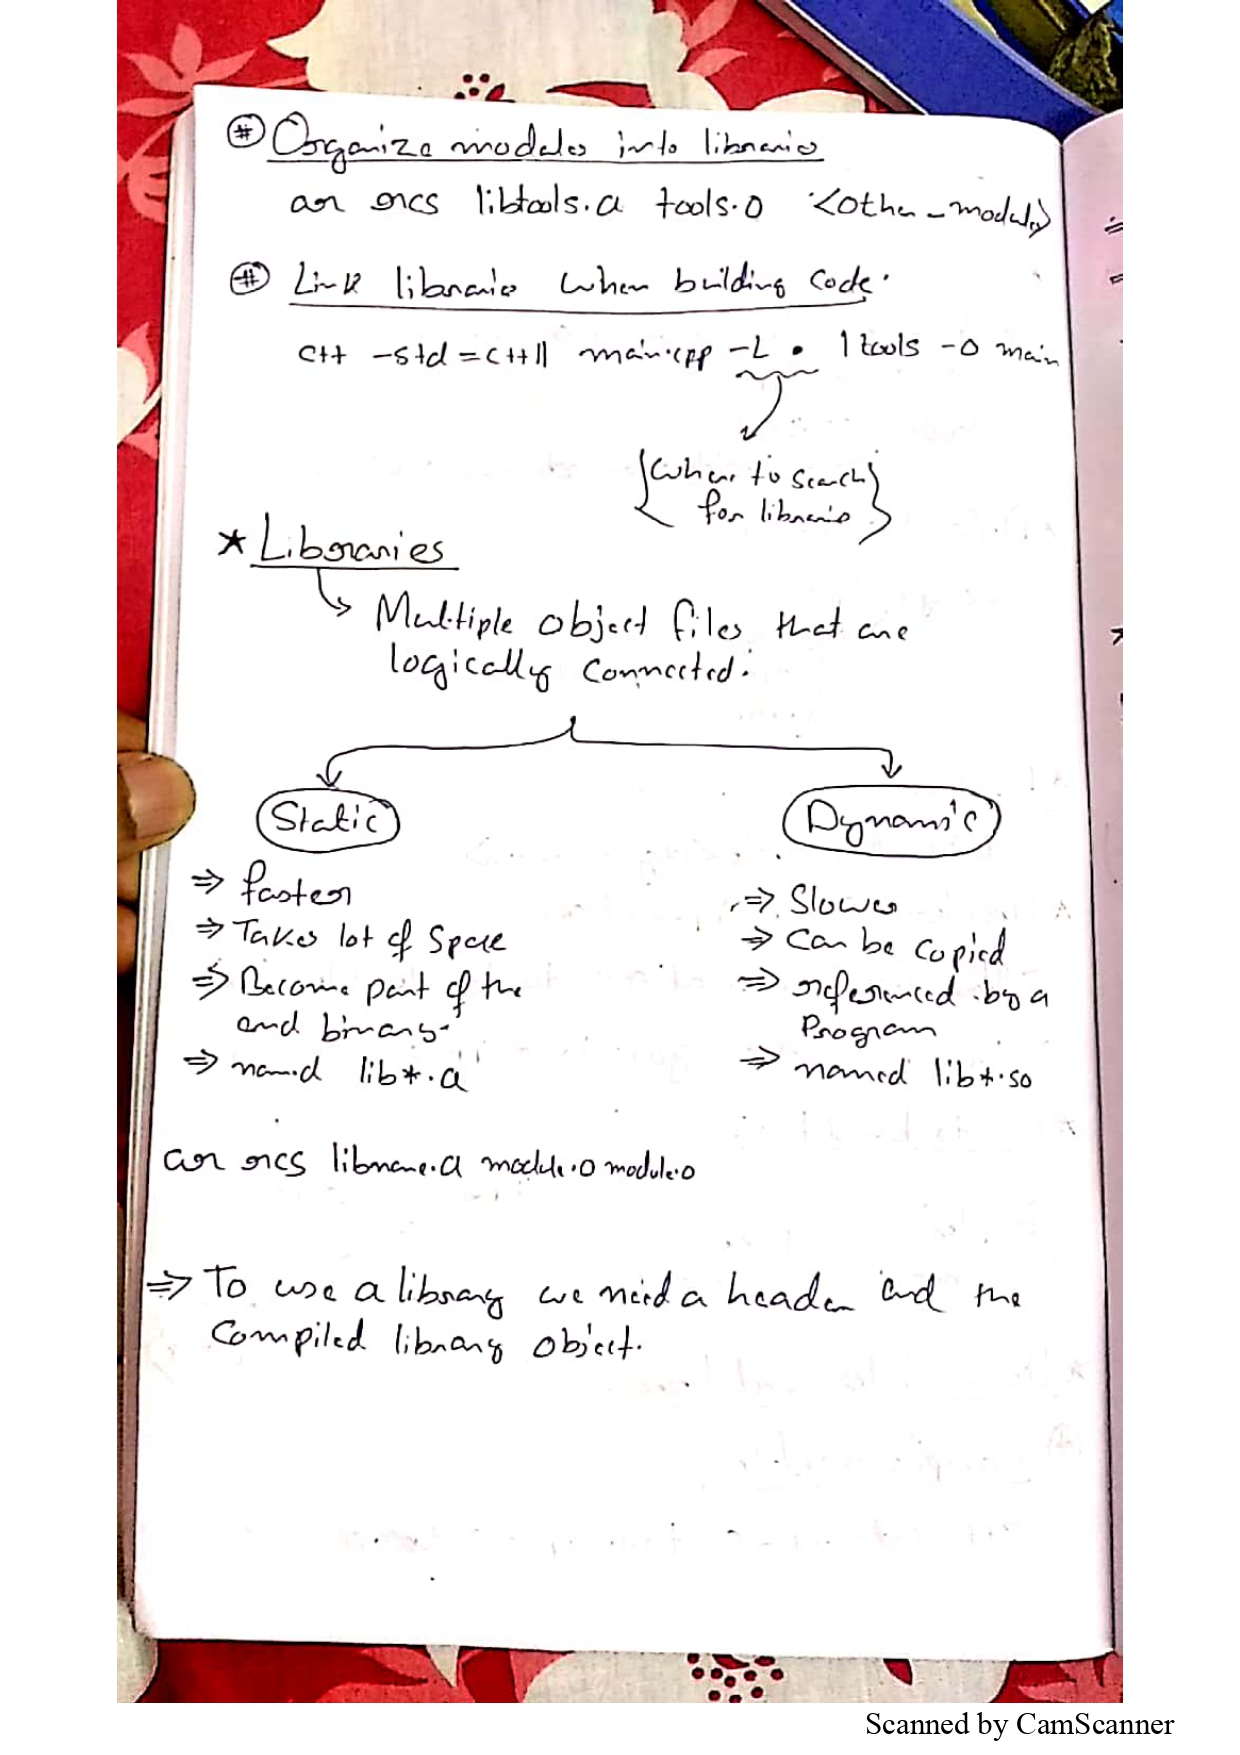 # Organize modules into libraries
ar rcs libtools.a tools.o <other_modules>
# Link libraries when building code.
c++ -std=c++11 main.cpp -L . ltools -o main
{ where to search
for libraries }
* Libraries
↳ Multiple object files that are
logically connected.
Static Dynamic
⇒ faster
⇒ Takes lot of space
⇒ Become part of the
end binary.
⇒ named lib*.a
⇒ Slower
⇒ Can be copied
⇒ referenced by a
Program
⇒ named lib*.so
ar rcs libname.a module.o module.o
⇒ To use a library we need a header and the
Compiled library object.
Scanned by CamScanner